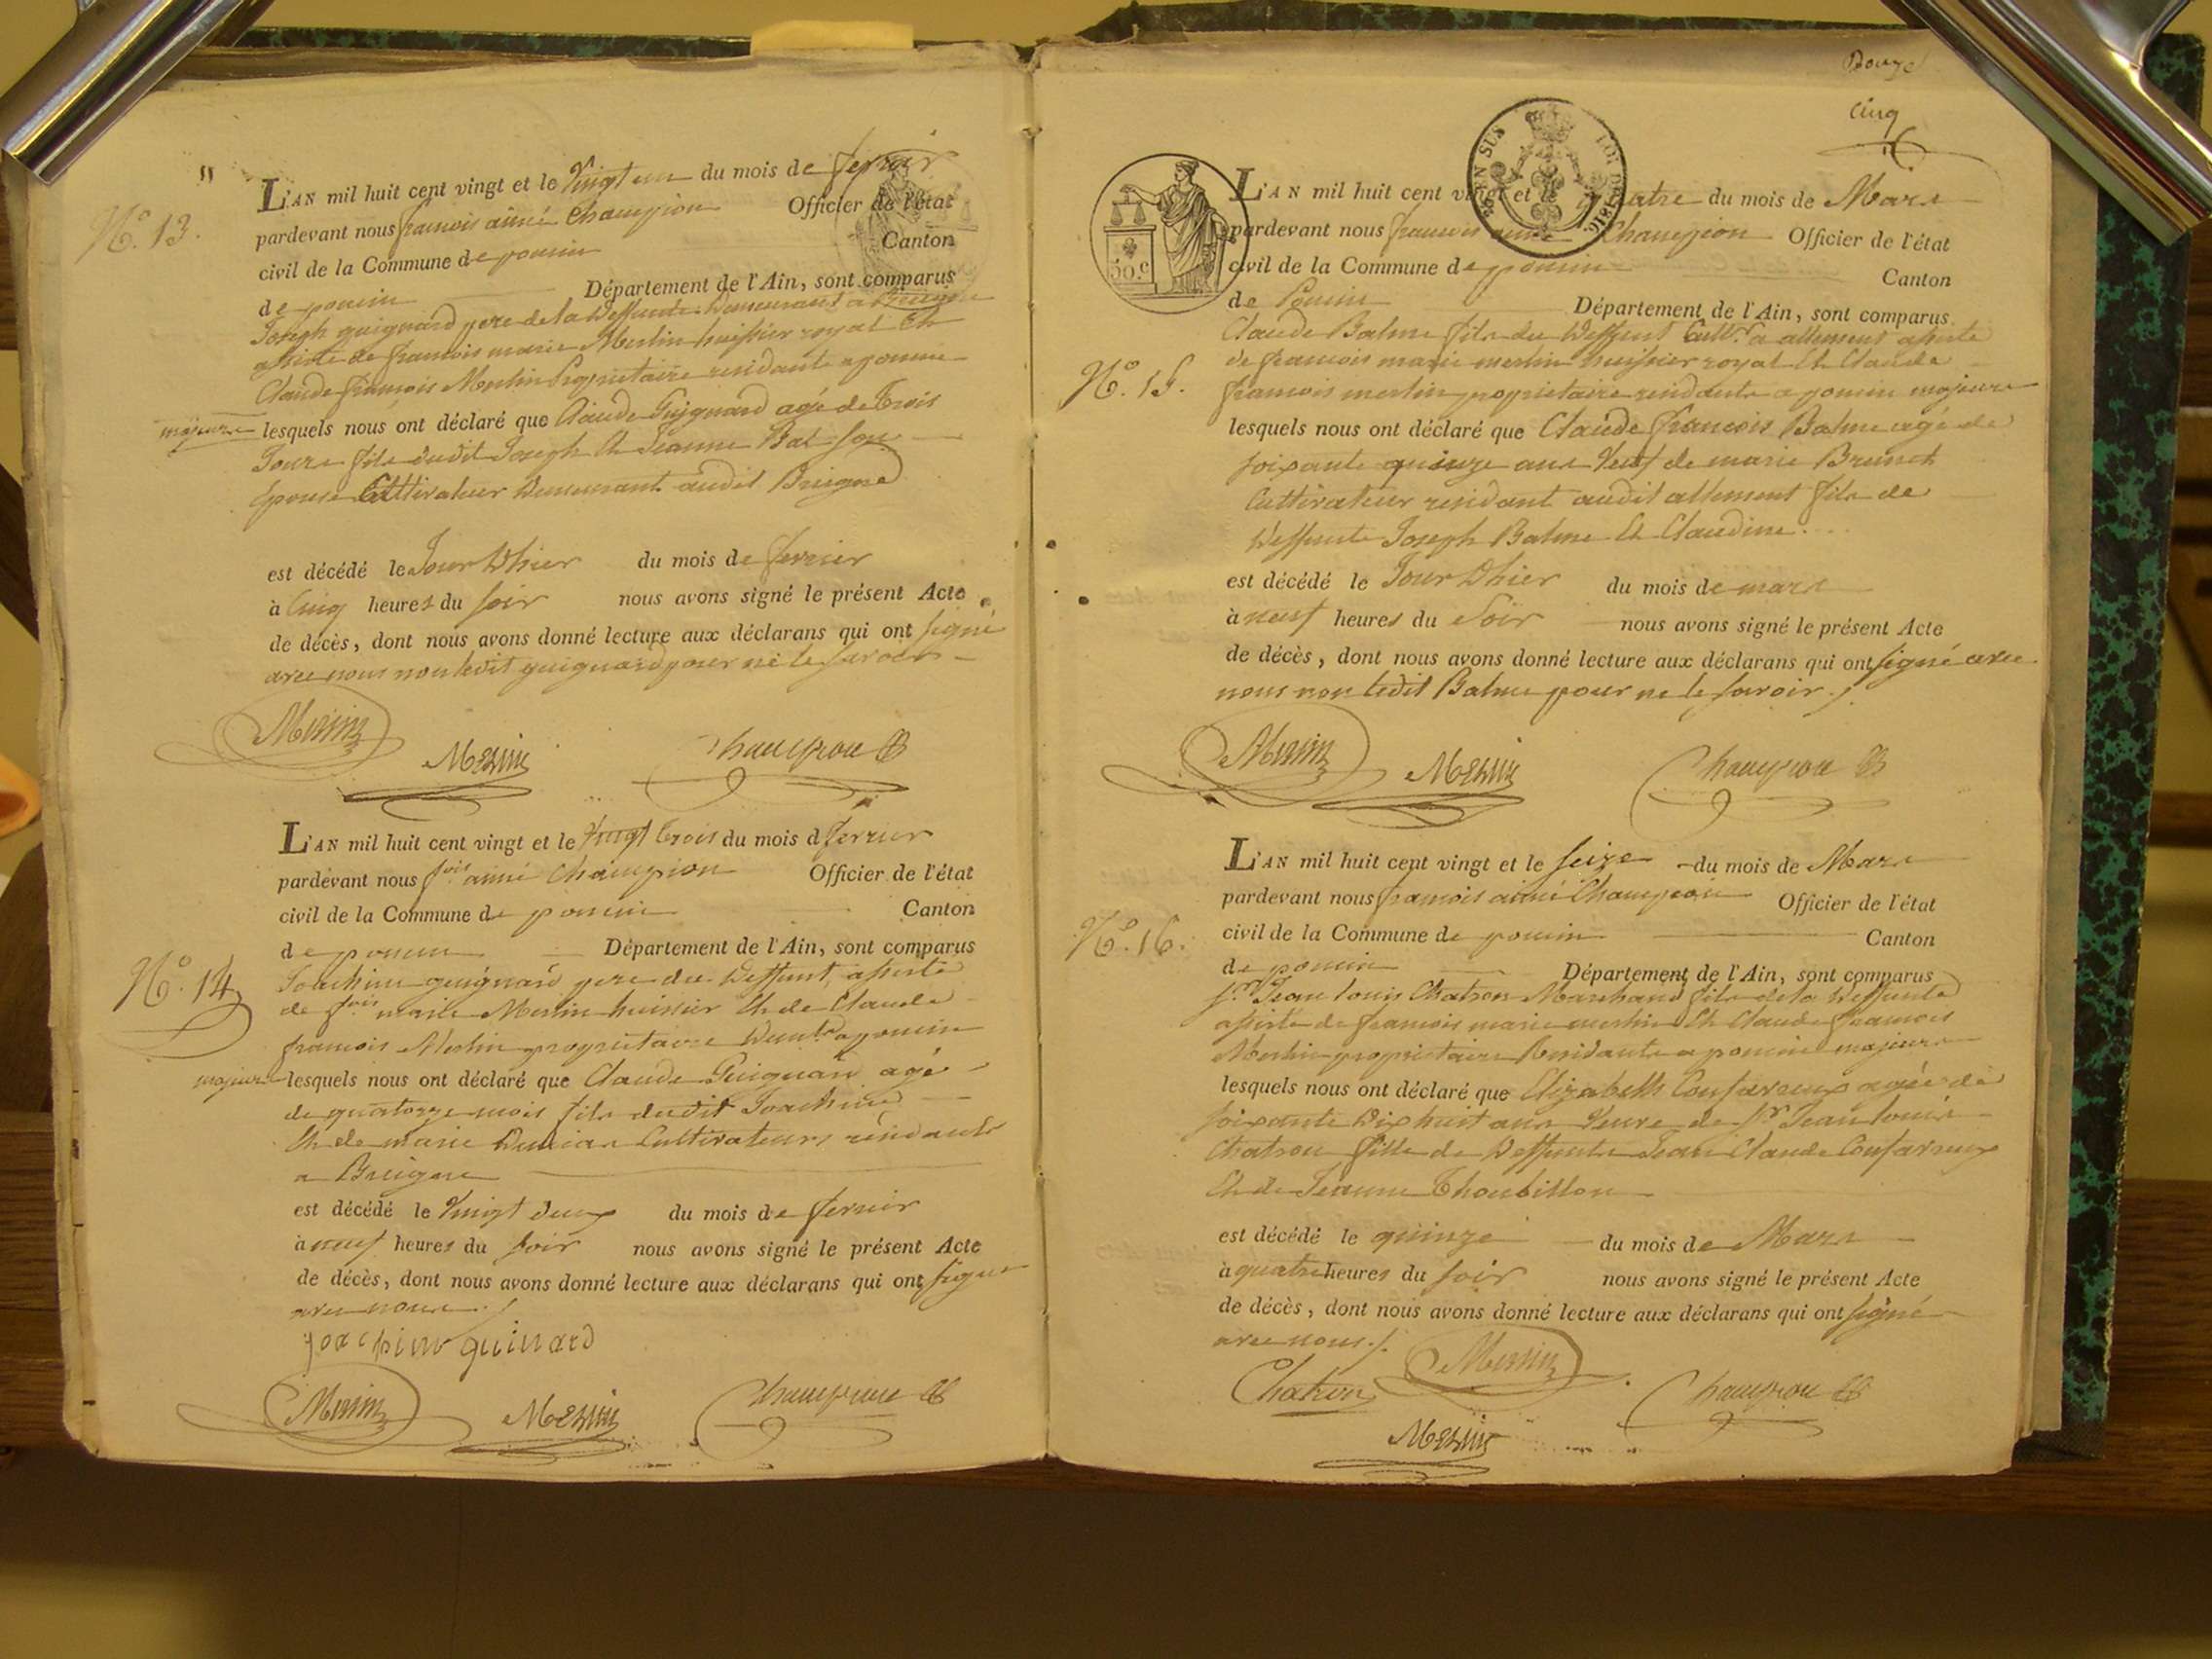 N.° 13.
L'AN mil huit cent vingt et le Vingt un du mois de fevrier
pardevant nous francois aimé Champion Officier de l'état
civil de la Commune de poncin Canton
de poncin Département de l'Ain, sont comparus
Joseph guignard pere de la Deffunte Demeurant a
assisté de francois marie Merlin huissier royal Et
Claude francois Merlin Proprietaire residants a poncin
majeurs lesquels nous ont déclaré que Claude Guignard agé de trois
Jours fils dudit Joseph Et Jeanne son
Epouse Cultivateur Demeurant audit
est décédé le Jour Dhier du mois de fevrier
à Cinq heures du soir nous avons signé le présent Acte
de décès, dont nous avons donné lecture aux déclarans qui ont signé
avec nous non ledit guignard pour ne le savoir
Merlin
Merlin
Champion
L'AN mil huit cent vingt et le Vingt trois du mois d fevrier
pardevant nous fois aimé Champion Officier de l'état
civil de la Commune de poncin Canton
de poncin Département de l'Ain, sont comparus
N.° 14
Joachim guignard pere du Deffunt, assisté
de fois marie Merlin huissier Et de Claude
francois Merlin proprietaire a poncin
majeurs lesquels nous ont déclaré que Claude Guignard agé
de quatorze mois fils dudit Joachim
Et de marie Cultivateurs residants
a
est décédé le Vingt deux du mois de fevrier
à neuf heures du soir nous avons signé le présent Acte
de décès, dont nous avons donné lecture aux déclarans qui ont signé
avec nous ./
joachim guinard
Merlin
Merlin
Champion
Cinq
50.c
L'AN mil huit cent vingt et le quatre du mois de Mars
pardevant nous francois aimé Champion Officier de l'état
civil de la Commune de poncin Canton
de Poncin Département de l'Ain, sont comparus
N.° 15.
Claude Balme fils du Deffunt Cultr a allement assisté
de francois marie merlin huissier royal Et Claude
francois merlin proprietaire residants a poncin majeurs
lesquels nous ont déclaré que Claude francois Balme agé de
soixante quinze ans Veuf de marie Brunet
Cultivateur residant audit allement fils de
Deffunts Joseph Balme Et Claudine....
est décédé le Jour Dhier du mois de mars
à neuf heures du Soir nous avons signé le présent Acte
de décès, dont nous avons donné lecture aux déclarans qui ont signé avec
nous non ledit Balme pour ne le savoir ./
Merlin
Merlin
Champion
L'AN mil huit cent vingt et le seize du mois de Mars
pardevant nous francois aimé Champion Officier de l'état
N.° 16.
civil de la Commune de poncin Canton
de poncin Département de l'Ain, sont comparus
Sr Jean louis Chatron Marchand fils de la Deffunte
assisté de francois marie merlin Et Claude francois
Merlin proprietaire Residants a poncin majeurs
lesquels nous ont déclaré que Elizabeth Confavreux agée de
soixante Dix huit ans Veuve de Sr Jean louis
Chatron fille de Deffunts Jean Claude Confavreux
Et de Jeanne Thoubillon
est décédé le quinze du mois de Mars
à quatre heures du soir nous avons signé le présent Acte
de décès, dont nous avons donné lecture aux déclarans qui ont signé
avec nous ./.
Chatron
Merlin
Champion
Merlin